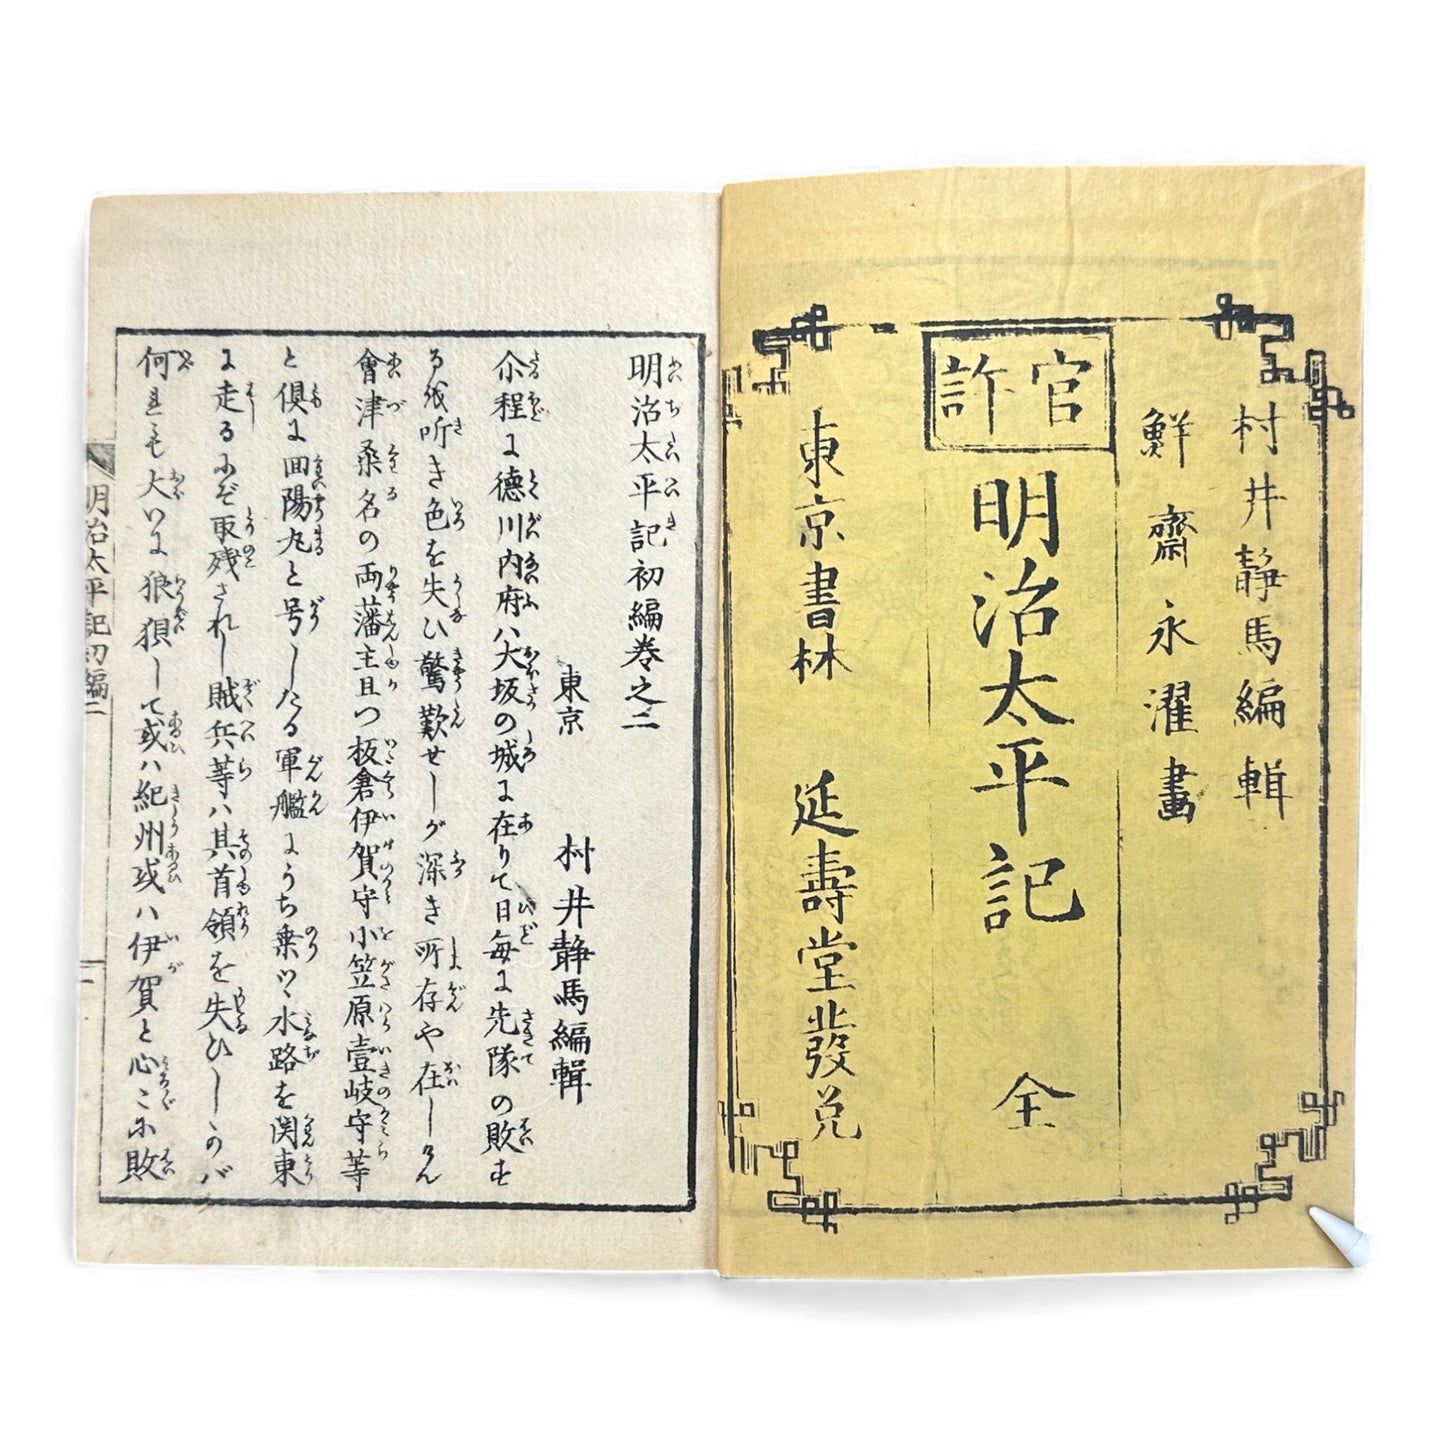 村井静馬編輯
鮮齋永濯畫
官許
明治太平記 全
東京書林 延壽堂發兌
明治太平記初編巻之二
東京 村井静馬編輯
尒程に徳川内府ハ大坂の城に在りて日毎に先隊の敗走
る或听き色を失ひ驚歎せしが深き所存や在しけん
會津桑名の両藩主且つ板倉伊賀守小笠原壹岐守等
と倶に回陽丸と号したる軍艦にうち乗ツ水路を関東
に走るにぞ取残されし賊兵等ハ其首領を失ひしかバ
何れも大いに狼狽して或ハ紀州或ハ伊賀と心こゝに敗
明治太平記初編二